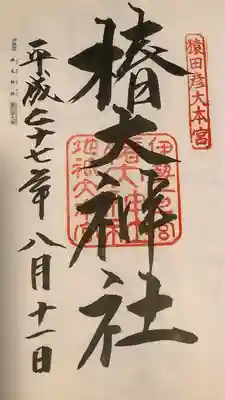 猿田彦大本宮
椿大神社
伊勢一之宮
椿大神社
地祇大本宮
平成二十七年八月十一日